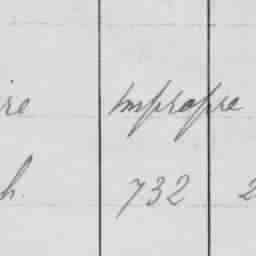 ire Impropre
h. 732 2